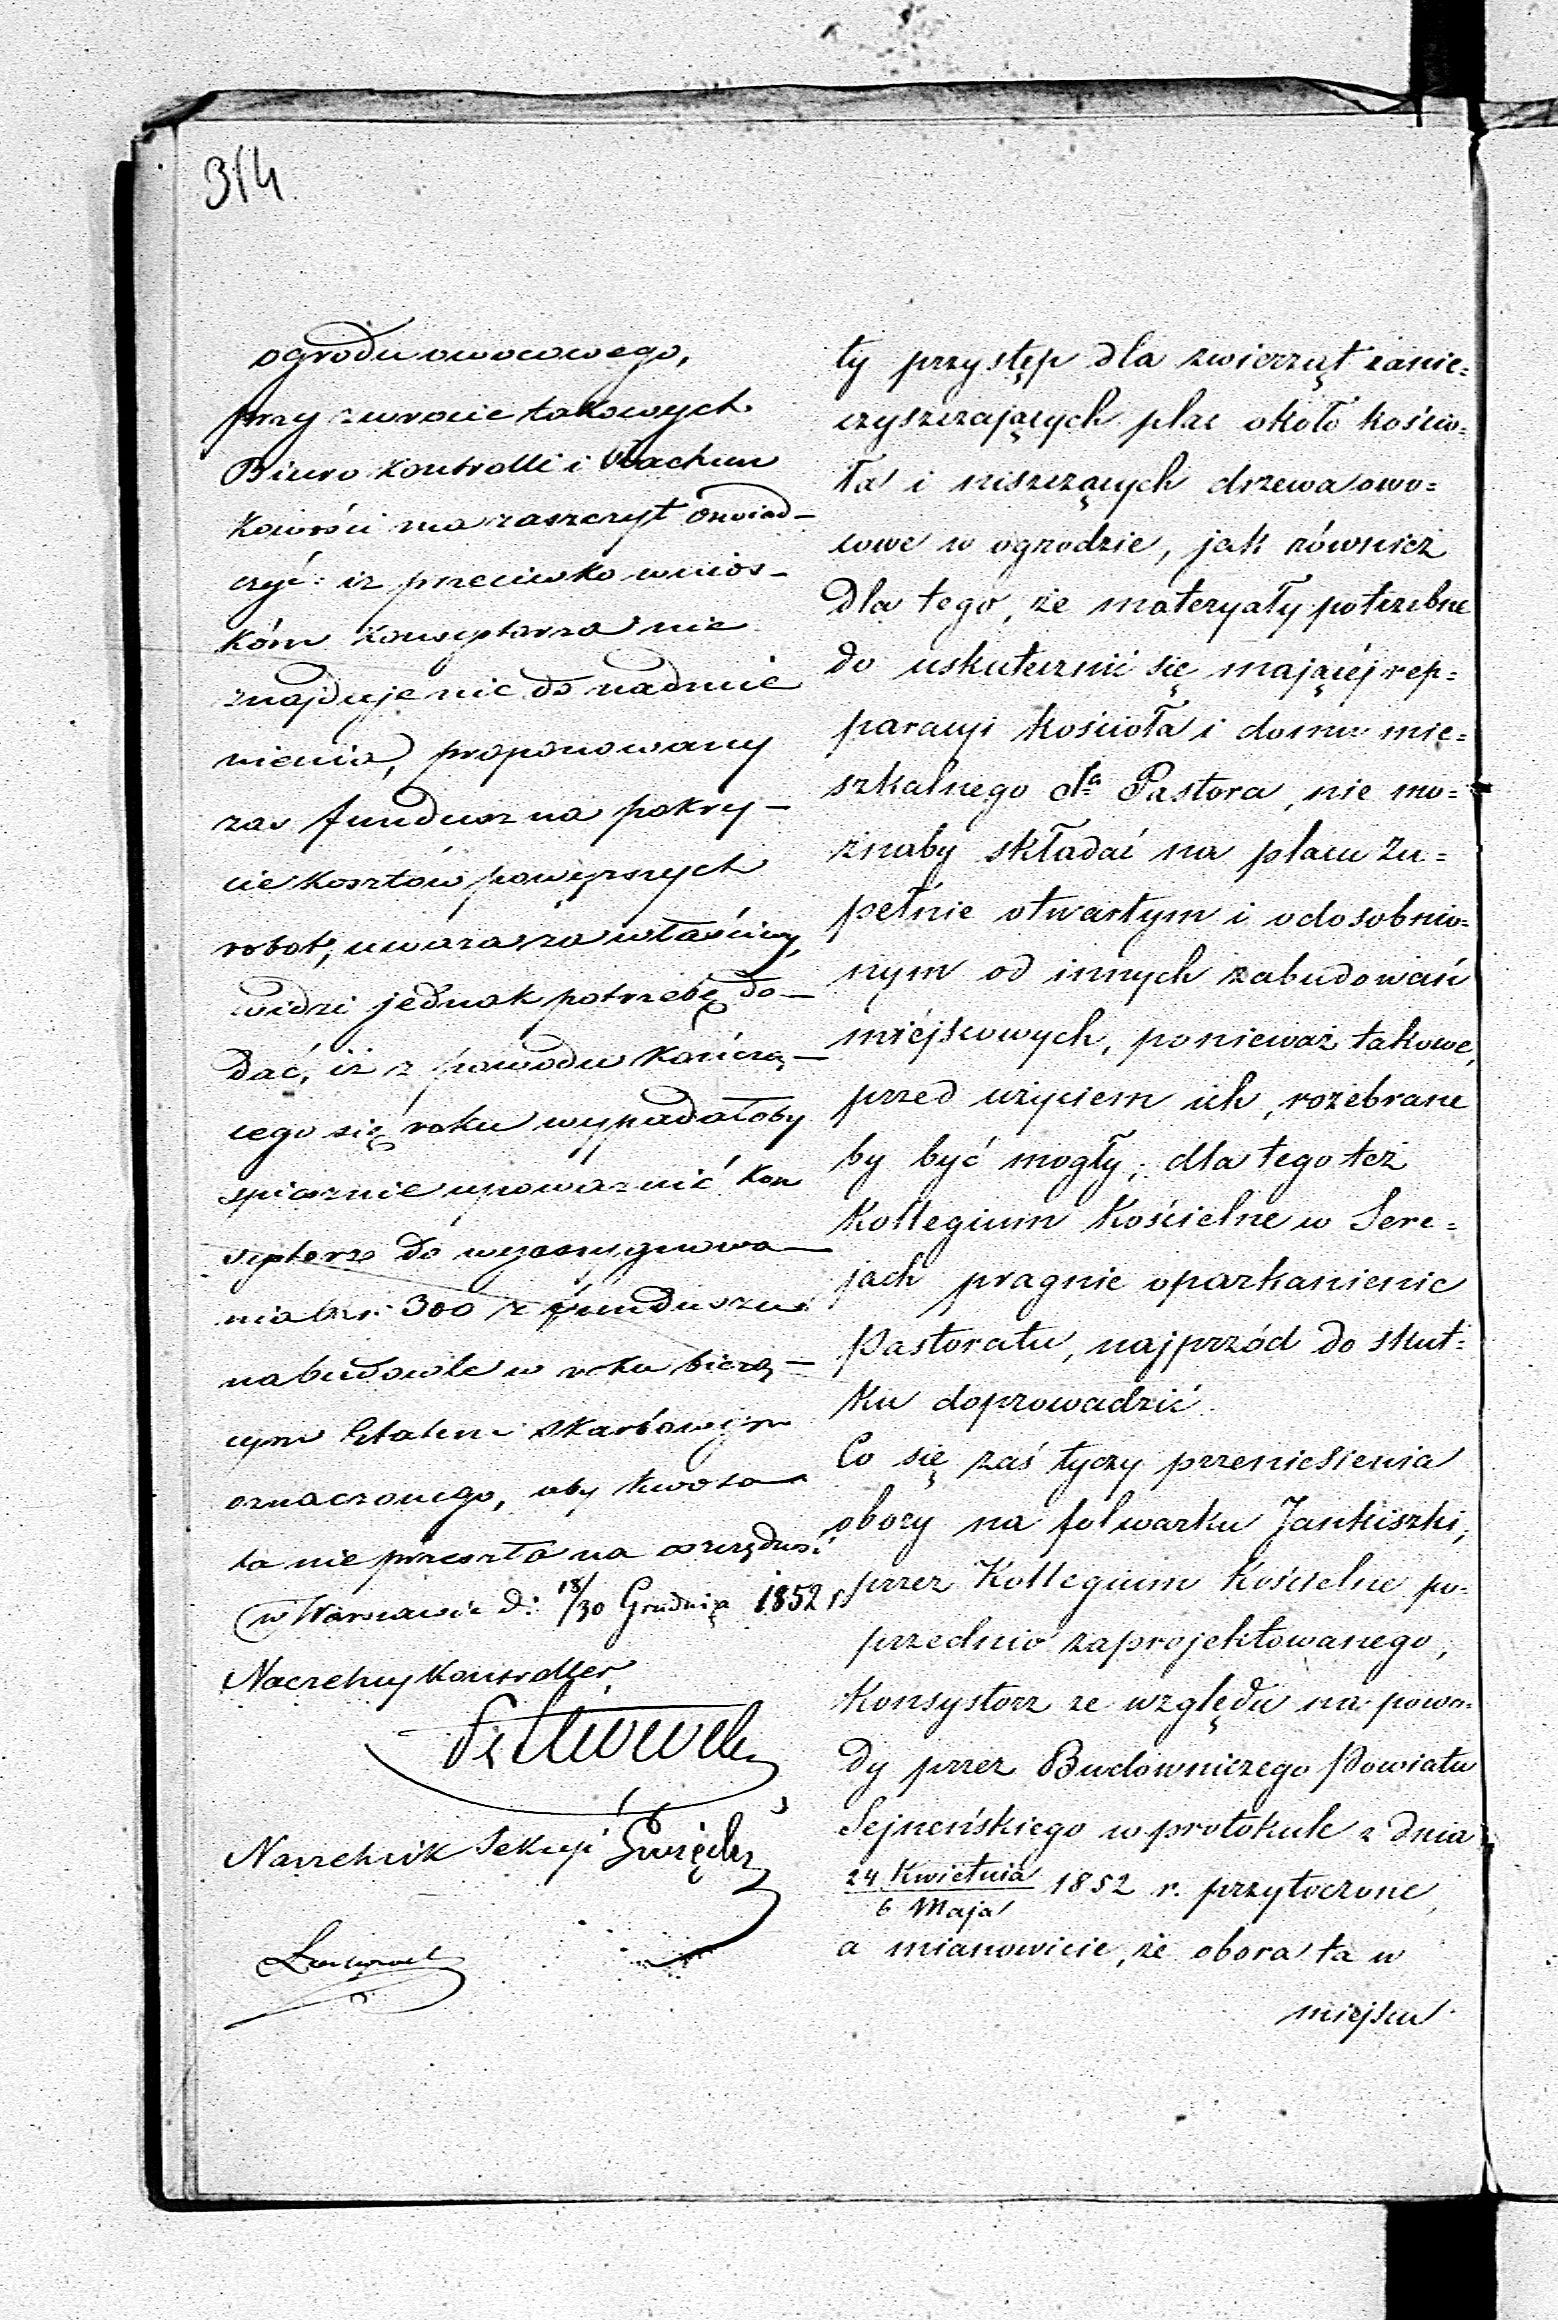 314.
ogrodu owocowego,
przy zwrocie takowych
Biuro Kontrolli i Rachun
kowości ma zaszczyt oświad-
czyć: iż przeciwko wnios-
kóm Konsystorza nie
znajduje nic do nadmie
nienia, proponowany
zaś fundusz na pokry-
cie kosztów powyższych
robot, uważa za właściwy,
widzi jednak potrzebę do-
dać, iż z powodu kończą-
cego się roku wypadałoby
spiesznie upoważnić Kon
systorz do wyassygnowa-
nia rs. 300 z funduszu
na budowle w roku bieżą-
cym Etatem Skarbowym
oznaczonego, aby kwota
ta nie przeszła na oszczędność
w Warszawie d: 18/30 Grudnia 1852 r.
Naczelny Kontroller,
Naczelnik Sekcyi
ty przystęp dla zwierząt zanie=
czyszczających plac około kościo=
ła i niszczących drzewa owo=
cowe w ogrodzie, jak również
dla tego, że materyały potrzebne
do uskutecznić się mającéj rep=
paracyi kościoła i domu mie=
szkalnego dla Pastora, nie mo=
żnaby składać na placu zu=
pełnie otwartym i odosobnio=
nym od innych zabudowań
miéjscowych, ponieważ takowe,
przed użyciem ich, rozebrane
by być mogły; dla tego też
Kollegium Kościelne w Sere=
jach pragnie oparkanienie
Pastoratu, najprzód do skut=
ku doprowadzić.
Co się zaś tyczy przeniesienia
obory na folwarku Jankiszki,
przez Kollegium Kościelne po=
przednio zaprojektowanego,
Konsystorz ze względu na powo=
dy przez Budowniczego Powiatu
Sejneńskiego w protokule z dnia
24 Kwietnia
6 Maja 1852 r. przytoczone,
a mianowicie, że obora ta w
miejscu